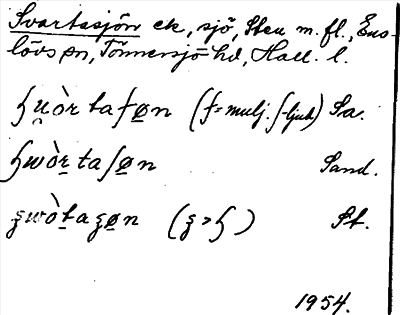 Svartasjön ek, sjö, Sten m. fl., Ens-
lövs sn, Tönnersjö hd, Hall. l.
ɧu̯òr ta ʃø̠n (ʃ = mulj. ʃ-ljud) Sa.
ɧwòr̠ ta ʃø̠n Sand.
ȿwòt̠aȿø̠n (ȿ > ɧ) St.
1954.